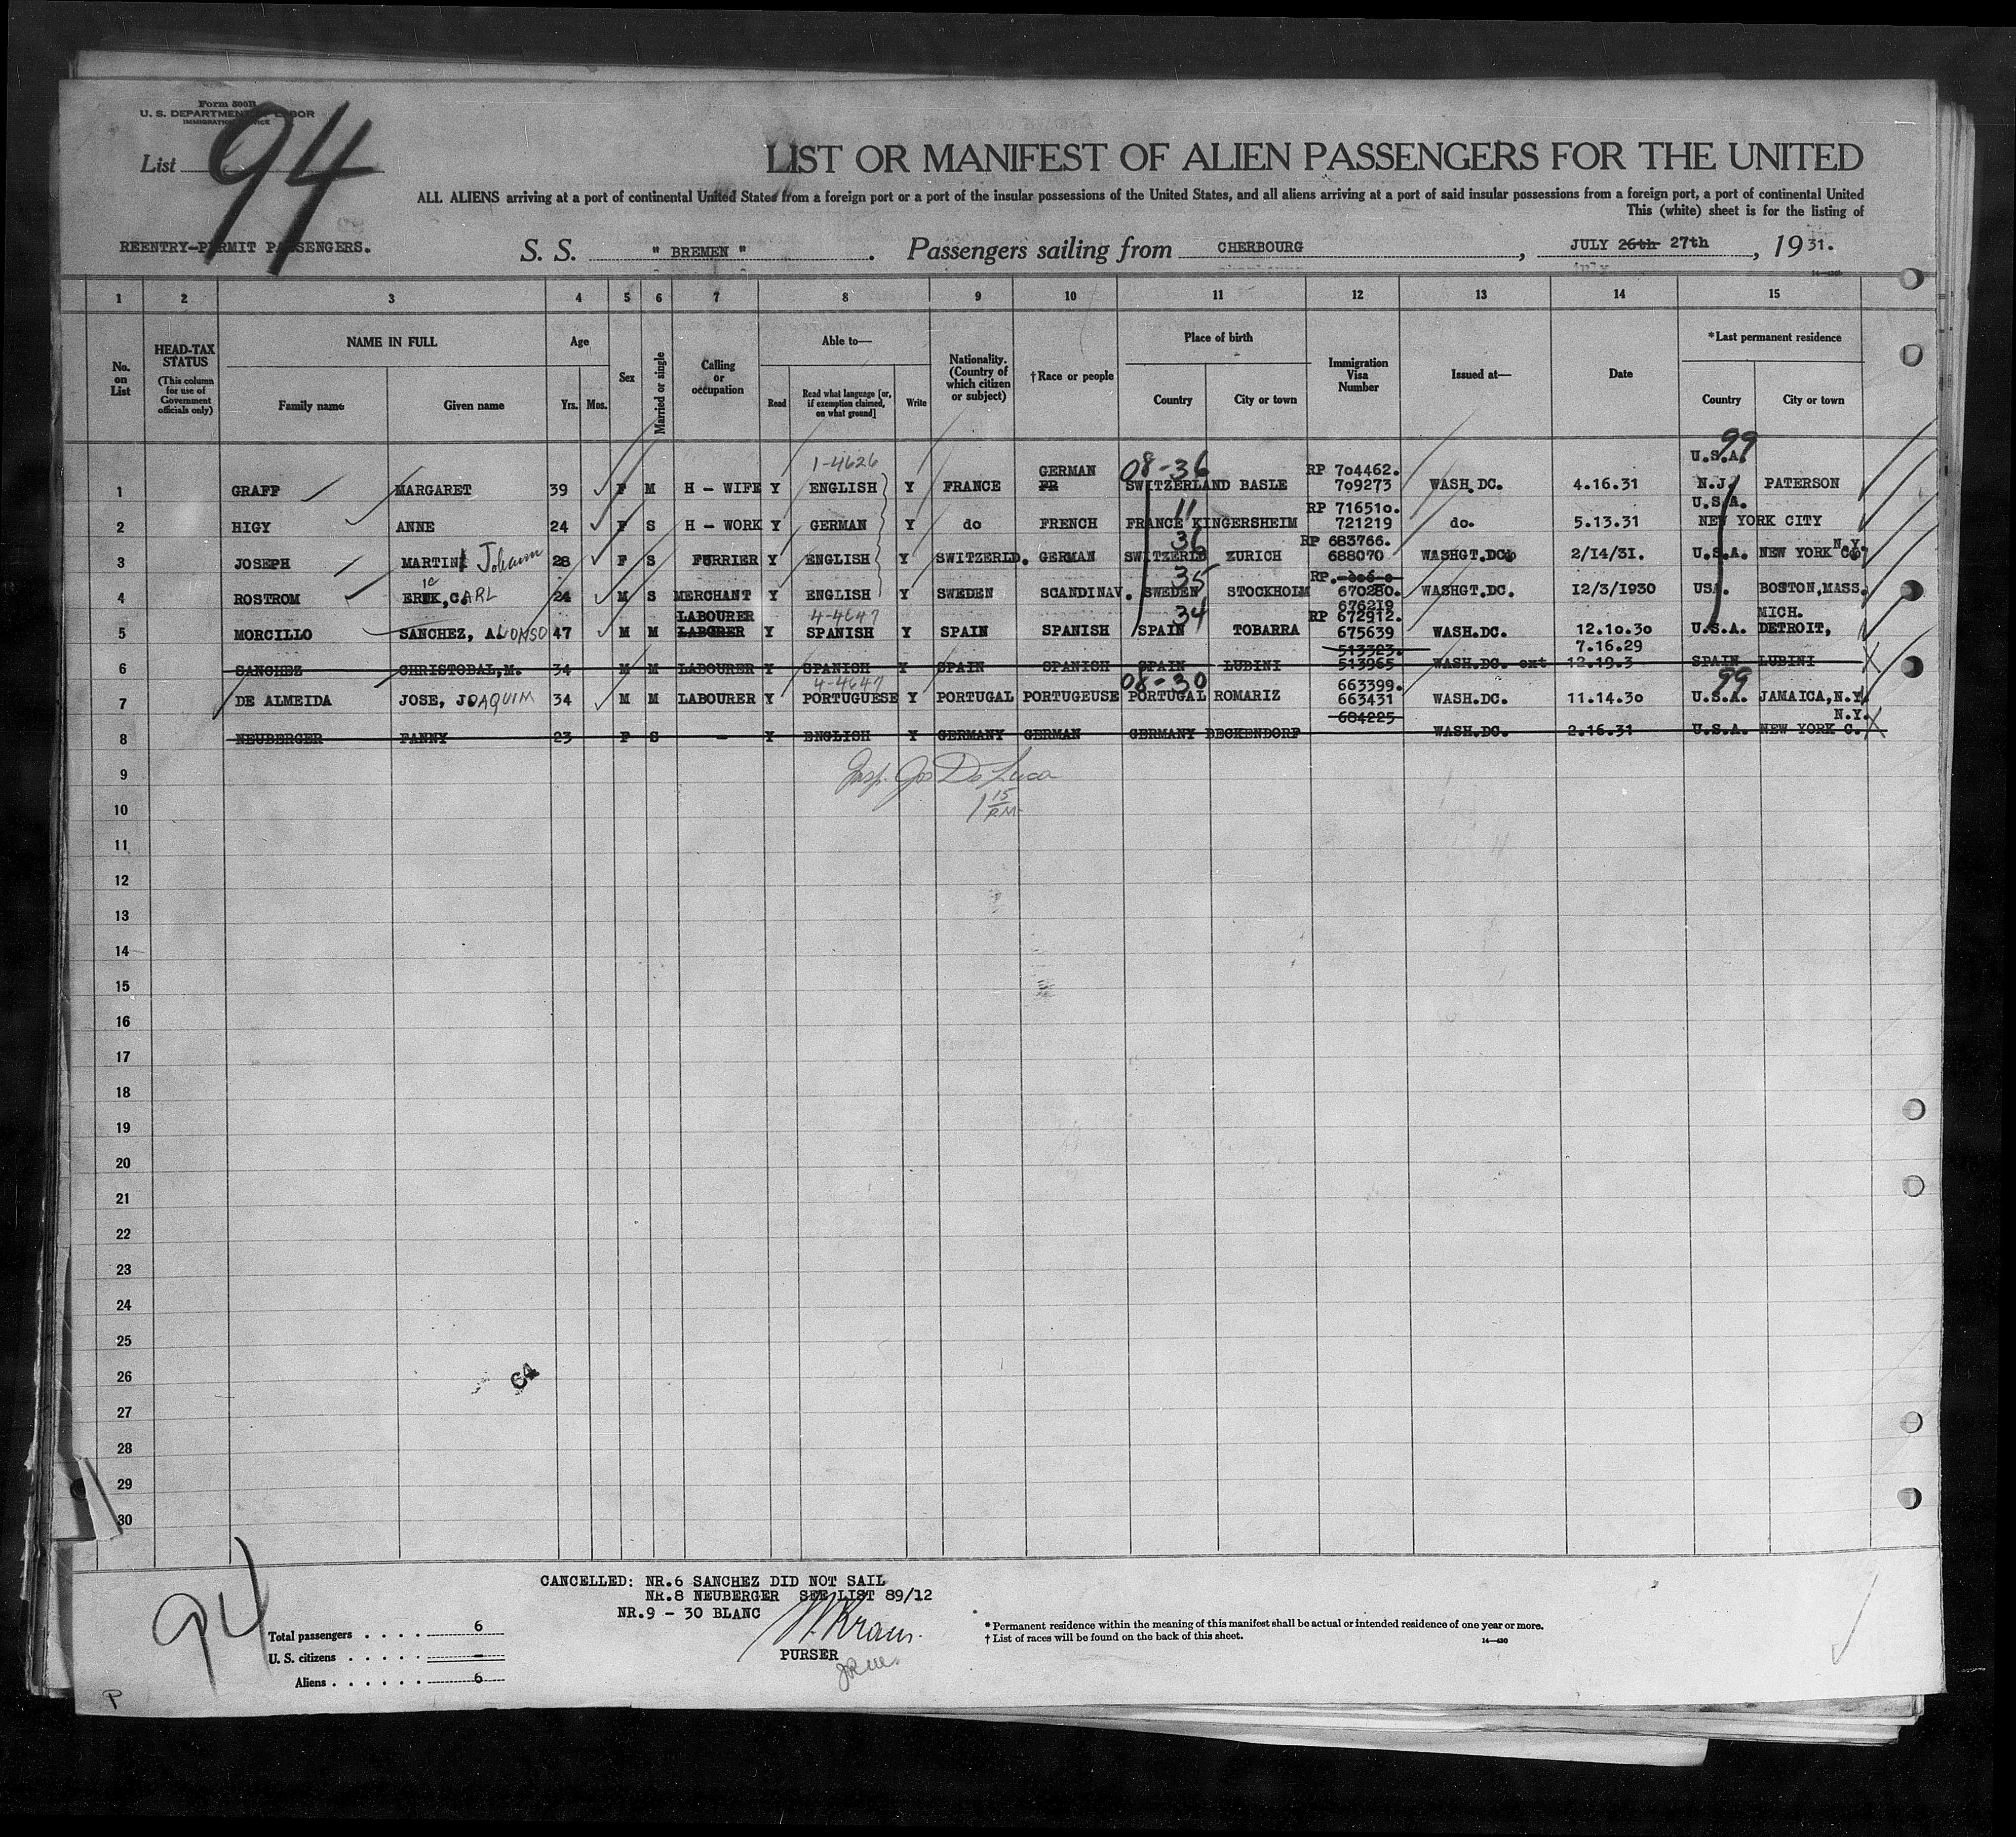 Form 500B
U. S. DEPARTMENT OF LABOR
IMMIGRATION SERVICE
List 94
LIST OR MANIFEST OF ALIEN PASSENGERS FOR THE UNITED
ALL ALIENS arriving at a port of continental United States from a foreign port or a port of the insular possessions of the United States, and all aliens arriving at a port of said insular possessions from a foreign port, a port of continental United
This (white) sheet is for the listing of
REENTRY-PERMIT PASSENGERS. S. S. " BREMEN ". Passengers sailing from CHERBOURG, JULY 26th 27th, 1931.
1 2 3 4 5 6 7 8 9 10 11 12 13 14 15
No. on List
HEAD-TAX STATUS (This column for use of Government officials only)
NAME IN FULL Family name Given name
Age Yrs. Mos.
Sex
Married or single
Calling or occupation
Able to— Read Read what language [or, if exemption claimed, on what ground] Write
Nationality. (Country of which citizen or subject)
†Race or people
Place of birth Country City or town
Immigration Visa Number
Issued at—
Date
*Last permanent residence Country City or town
1-4626 GERMAN 08-36 RP 704462. 99 U.S.A.
1 GRAFF MARGARET 39 F M H - WIFE Y ENGLISH Y FRANCE FR SWITZERLAND BASLE 709273 WASH.DC. 4.16.31 N.J. PATERSON
11 RP 716510. U.S.A.
2 HIGY ANNE 24 F S H - WORK Y GERMAN Y do FRENCH FRANCE KINGERSHEIM 721219 do. 5.13.31 NEW YORK CITY
36 RP 683766. N.Y.
3 JOSEPH MARTIN Johann 28 F S FURRIER Y ENGLISH Y SWITZERLD. GERMAN SWITZERLD ZURICH 688070 WASHGT.DC 2/14/31. U.S.A. NEW YORK
ic 35 RP.
4 ROSTROM ERIK,CARL 24 M S MERCHANT Y ENGLISH Y SWEDEN SCANDINAV. SWEDEN STOCKHOLM 670280. WASHGT.DC. 12/3/1930 USA. BOSTON,MASS.
676219
LABOURER 4-4647 34 RP 672912. MICH.
5 MORCILLO SANCHEZ, ALONSO 47 M M LABORER Y SPANISH Y SPAIN SPANISH SPAIN TOBARRA 675639 WASH.DC. 12.10.30 U.S.A. DETROIT,
513323. 7.16.29
6 SANCHEZ CHRISTOBAL,M. 34 M M LABOURER Y SPANISH Y SPAIN SPANISH SPAIN LUBINI 513965 WASH.DC. ext 12.19.3 SPAIN LUBINI
4-4647 08-30 663399. 99
7 DE ALMEIDA JOSE, JOAQUIM 34 M M LABOURER Y PORTUGUESE Y PORTUGAL PORTUGEUSE PORTUGAL ROMARIZ 663431 WASH.DC. 11.14.30 U.S.A. JAMAICA,N.Y.
684225 N.Y.
8 NEUBERGER FANNY 23 F S - Y ENGLISH Y GERMANY GERMAN GERMANY BECKENDORF WASH.DC. 2.16.31 U.S.A. NEW YORK C.
9 Insp. Jos De Luca
10 1 15 P.M.
11
12
13
14
15
16
17
18
19
20
21
22
23
24
25
26 64
27
28
29
30
94
CANCELLED: NR.6 SANCHEZ DID NOT SAIL
NR.8 NEUBERGER SEE LIST 89/12
NR.9 - 30 BLANC
Total passengers . . . . 6
U. S. citizens . . . . . -
Aliens . . . . . . 6
PURSER
* Permanent residence within the meaning of this manifest shall be actual or intended residence of one year or more.
† List of races will be found on the back of this sheet. 14—430
P